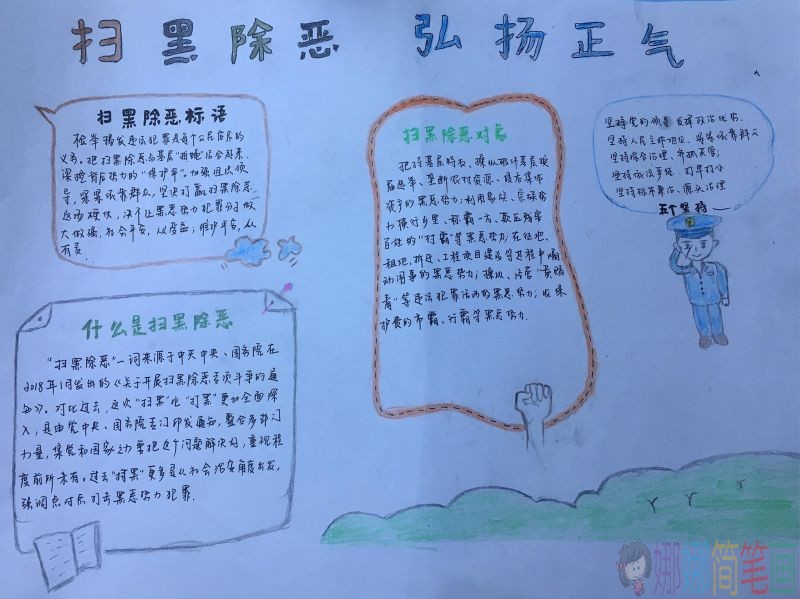 扫黑除恶 弘扬正气
扫黑除恶标语
检举揭发违法犯罪是每个公民应尽的
义务。把扫黑除恶与基层"拍蝇"结合起来,
深挖背后势力的"保护伞"。加强组织领
导,紧紧依靠群众,坚决打赢扫黑除恶
这场硬仗,决不让黑恶势力犯罪分子做
大做强。社会平安,从受益;维护平安,从
有责。
什么是扫黑除恶
"扫黑除恶"一词来源于中共中央、国务院在
2018年1月发出的《关于开展扫黑除恶专项斗争的通
知》。对比过去,这次"扫黑"比"打黑"更加全面深
入,是由党中央、国务院专门印发通知,整合多部门
力量,集党和国家之力要把这个问题解决好,重视程
度前所未有。过去"打黑"更多是从社会治安角度出发,
强调点对点打击黑恶势力犯罪.
扫黑除恶对象
把持基层政权、操纵破坏基层换
届选举、垄断农村资源、侵吞集体
资产的黑恶势力;利用家族、宗族势
力横行乡里、称霸一方、欺压残害
百姓的"村霸"等黑恶势力;在征地、
租地、拆迁、工程项目建设等过程中煽
动闹事的黑恶势力;操纵、经营"黄赌
毒"等违法犯罪活动的黑恶势力;收保
护费的市霸、行霸等黑恶势力.
坚持党的领导 发挥政治优势.
坚持人民主体地位、紧紧依靠群众
坚持综合治理、齐抓共管;
坚持依法严惩、打早打小
坚持标本兼治、源头治理
五个坚持
娜
简笔画